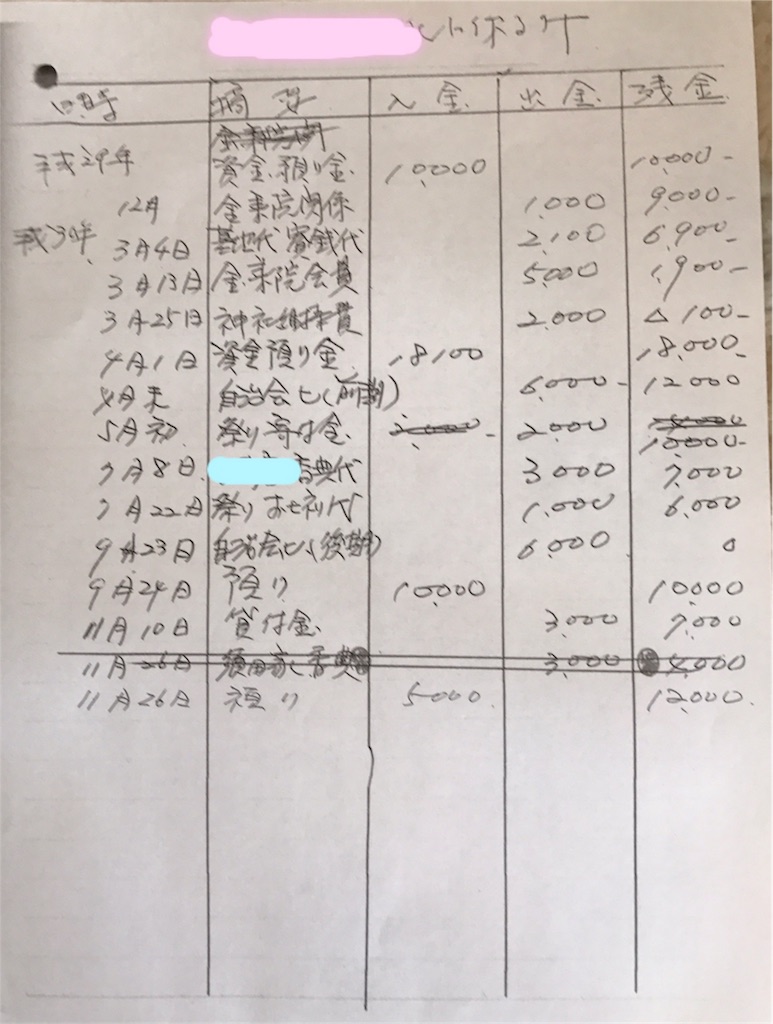 日時 摘要 入金 出金 残金
平成29年 資金預り金 10,000 10,000-
12月 金来院関係 1,000 9,000-
平成30年 3月4日 墓地代賽銭代 2,100 6,900-
3月13日 金来院会費 5,000 1,900-
3月25日 神社費 2,000 △100-
4月1日 資金預り金 18,100 18,000-
4月末 自治会ヒ(前期) 6,000- 12000
5月初 祭り寄付金 2,000 10,000-
7月8日 香典代 3000 7,000
7月22日 祭りお七初代 1,000 6,000
9月23日 自治会ヒ(後期) 6,000 0
9月24日 預り 10,000 10000
11月10日 貸付金 3,000 7,000
11月26日 香典 3,000 4,000
11月26日 預り 5000 12,000